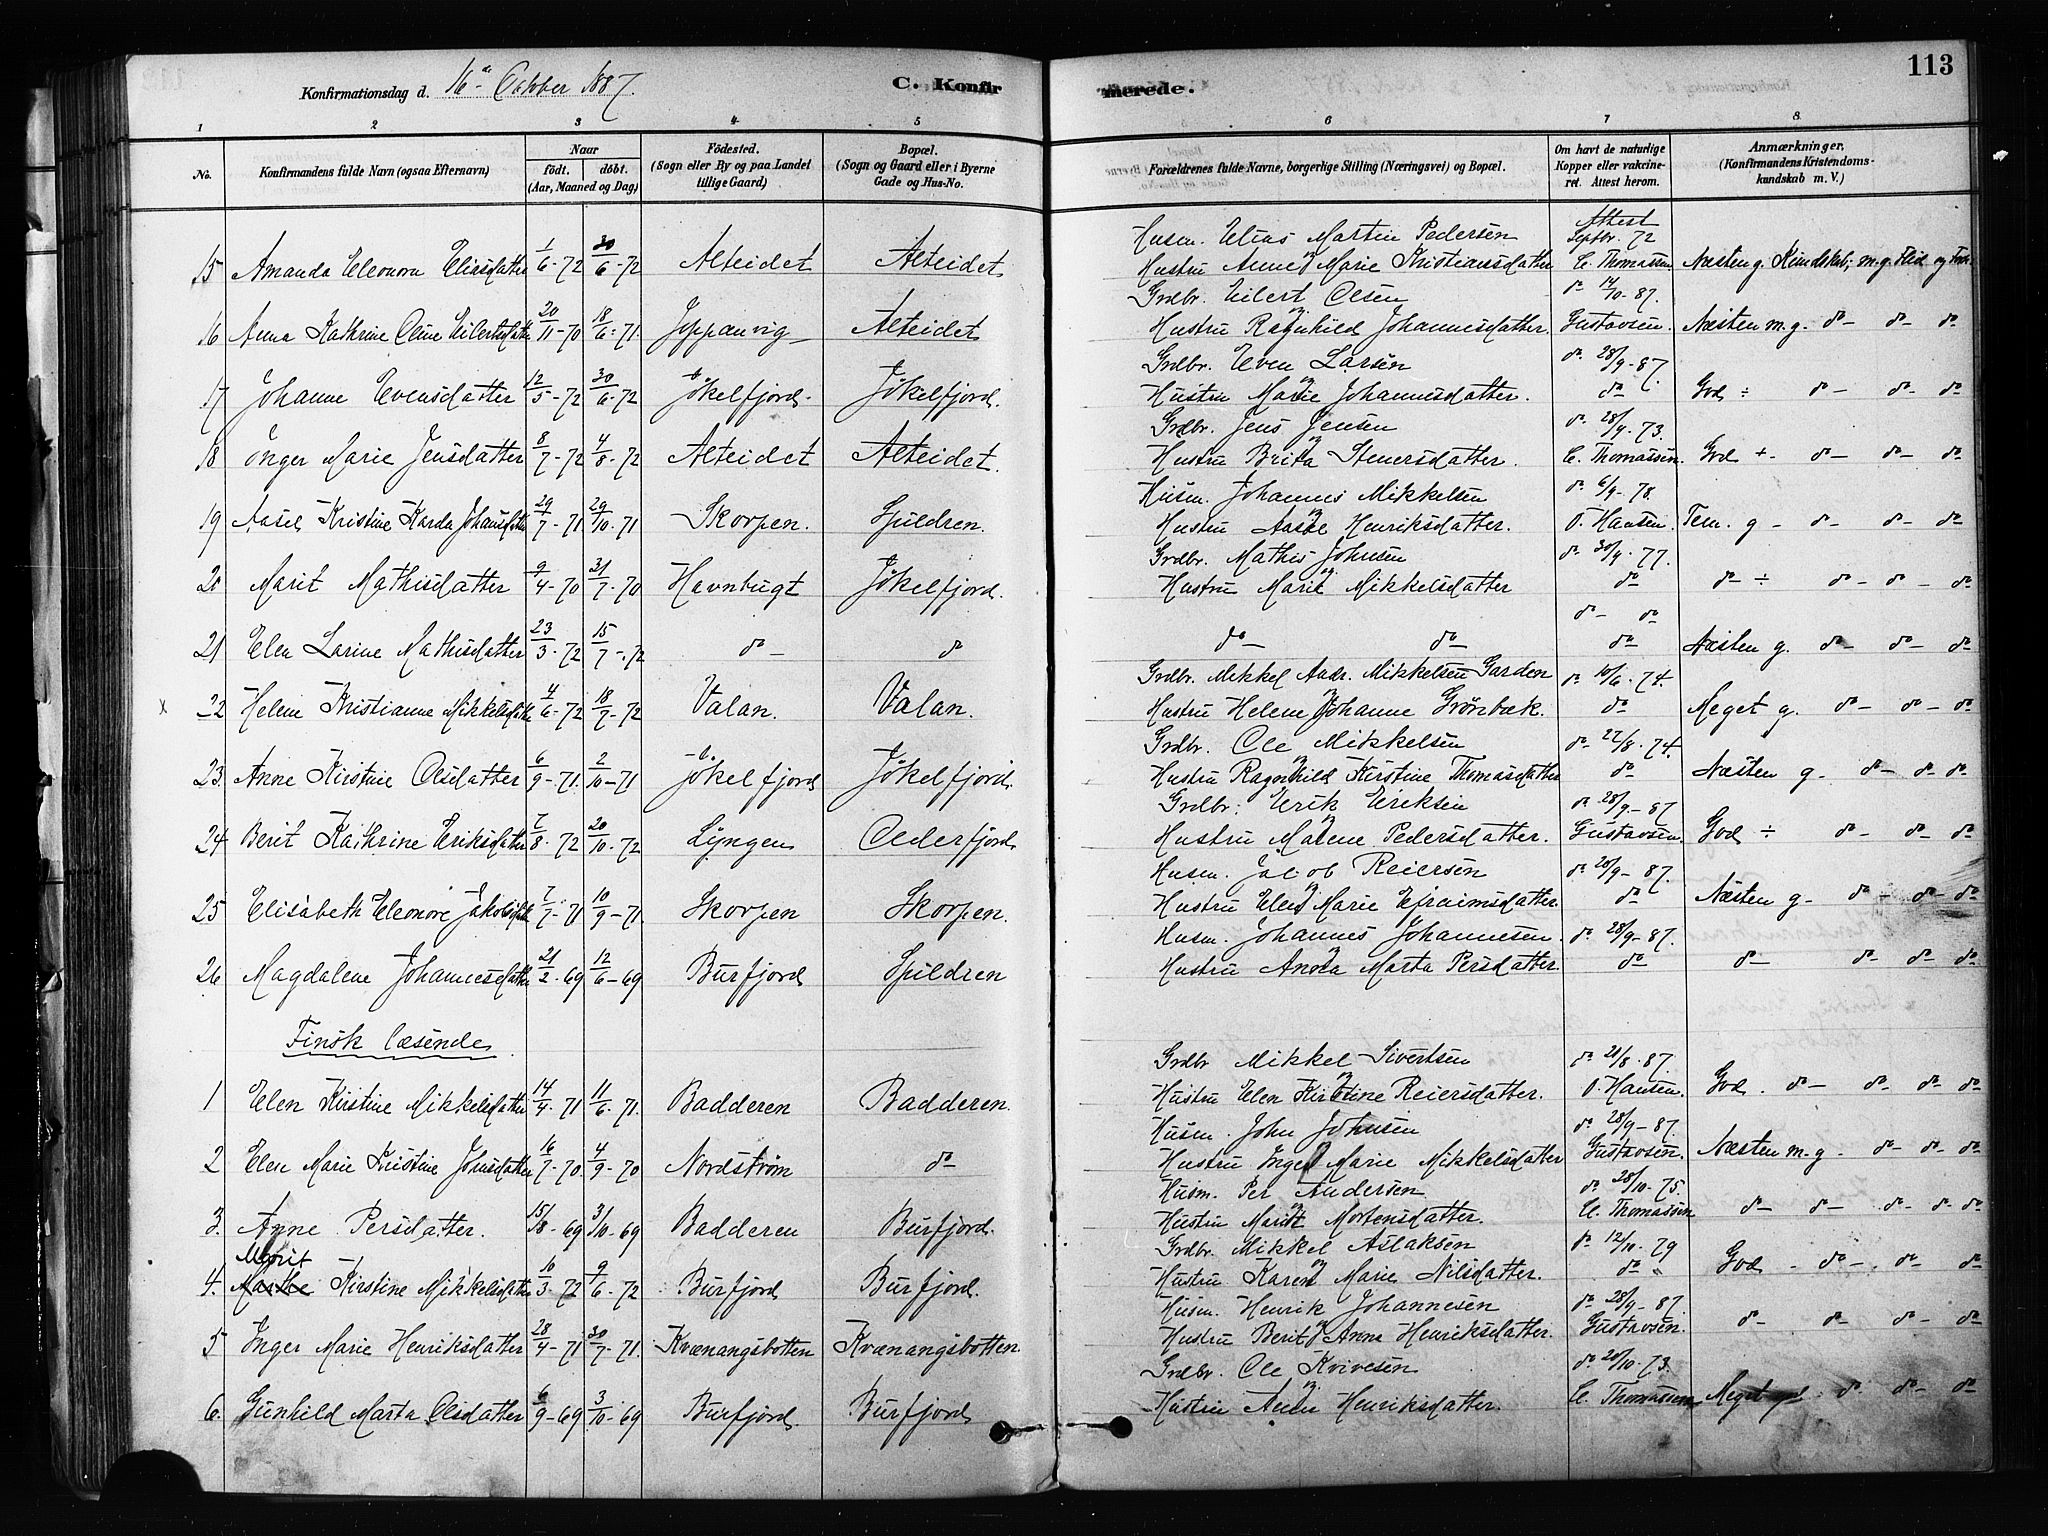 113
Konfirmationsdag d. 16de October 1887.
C. Konfirmerede.
1 2 3 4 5 6 7 8
No.
Konfirmandens fulde Navn (ogsaa Efternavn)
Naar
født. døbt.
(Aar, Maaned og Dag)
Fødested.
(Sogn eller By og paa Landet
tillige Gaard)
Bopæl.
(Sogn og Gaard eller i Byerne
Gade og Hus-No.
Forældrenes fulde Navne, borgerlige Stilling (Næringsvei) og Bopæl.
Om havt de naturlige
Kopper eller vakcine-
ret. Attest herom.
Anmærkninger.
(Konfirmandens Kristendoms-
kundskab m. V.)
Husm. Elias Martin Pedersen Attest Septbr. 72
15 Amanda Eleonora Eliasdatter 1/6-72 30/6-72 Alteidet Alteidet Hustru Anne Marie Kristiansdatter C. Thomassen Næsten g. Kundskab; m.g. Flid og
Grdbr. Eilert Olsen do 14/10-87.
16 Anna Kathrine Oline Eilertsdatter 20/11-70 18/6-71. Joppanvig Alteidet Hustru Ragnhild Johannesdatter. Gustavsen. Næsten m.g. do- do- do
Grdbr. Even Larsen do 28/9-87.
17 Johanne Evensdatter 12/5-72 30/6-72 Jøkelfjord. Jøkelfjord. Hustru Marie Johannesdatter. do God ÷ do- do- do
Grdbr. Jens Jensen do 28/9.73.
18 Inger Marie Jensdatter 8/7-72 4/8-72 Alteidet Alteidet. Hustru Brita Stenersdatter. C. Thomassen. God +- do- do- do
Husm. Johannes Mikkelsen do 6/9-78.
19 Aasel Kristine Karda Johansdatter 29/7-71 29/10-71 Skorpen. Spildren. Hustru Aase Henriksdatter. O. Hansen. Tem. g- do- do- do
Grdbr. Mathis Johnsen do 30/9.77.
20 Marit Mathisdatter 9/4-70 31/7-70 Havnbugt Jøkelfjord. Hustru Marit Mikkelsdatter do do ÷ do- do- do
do- do
21 Elen Larine Mathisdatter 23/3-72 15/7-72 do- do do- do- do Næsten g. do- do- do
Grdbr. Mikkel Andr. Mikkelsen Garden do 10/6.74.
x 22 Helene Kristianne Mikkelsdatter 4/6-72 18/7-72 Valan. Valan. Hustru Helene Johanne Grönbæk. do Meget g. do- do- do
Grdbr. Ole Mikkelsen do 22/8.74.
23. Anne Kirstine Olsdatter 6/9-71. 2/10-71 Jøkelfjord Jøkelfjord. Hustru Ragnhild Kirstine Thomasdatter do Næsten g- do- do- do
Grdbr. Erik Eriksen do 28/9-87
24 Berit Kathrine Eriksdatter 7/8-72 20/10-72 Lyngen Oederfjord Hustru Malene Pedersdatter. Gustavsen. God ÷ do- do- do
Husm. Jacob Reiersen do 20/9-87.
25 Elisabeth Eleonore Jakobsdatter 7/7-71 10/9-71. Skorpen Skorpen. Hustru Elen Marie Efraimsdatter. do Næsten g- do- do- do
Husm. Johannes Johannesen. do 28/9-87.
26 Magdalene Johannesdatter 21/2-69 12/6-69 Burfjord Spildren Hustru Anna Marta Persdatter. do do- do- do- do
Finsk læsende
Grdbr Mikkel Sivertsen do 21/8.87.
1 Elen Kirstine Mikkelsdatter 14/4-71 11/6-71. Badderen Badderen. Hustru Elen Kirstine Reiersdatter. O. Hansen. God. do- do- do- do
Husm. John Johnsen do 28/9-87.
2 Elen Marie Kristine Johnsdatter 16/7-70. 4/9-70 Nordstrøm do- Hustru Inger Marie Mikkelsdatter Gustavsen. Næsten m.g- do- do- do
Husm. Per Andersen do 28/10-75.
3. Anne Persdatter. 15/8-69 3/10-69 Badderen Burfjord. Hustru Marit Mortensdatter. C. Thomassen do- do- do- do- do
Grdbr. Mikkel Aslaksen do 12/10.79
Marit
4. Marthe Kirstine Mikkelsdatter 10/3-72 9/6-72 Burfjord Burfjord. Hustru Karen Marie Nilsdatter. do God - do- do- do
Husm. Henrik Johannesen do 28/9-87.
5 Inger Marie Henriksdatter 28/4-71 30/7-71. Kvænangsbotten Kvænangsbotten Hustru Berit Anna Henriksdatter. Gustavsen. do- do- do- do
Grdbr. Ole Kvivesen do 20/10.73.
6. Gunhild Marta Olsdatter 6/9-69 3/10-69 Burfjord. Burfjord Hustru Henriksdatter. C. Thomassen Meget gd do do- do